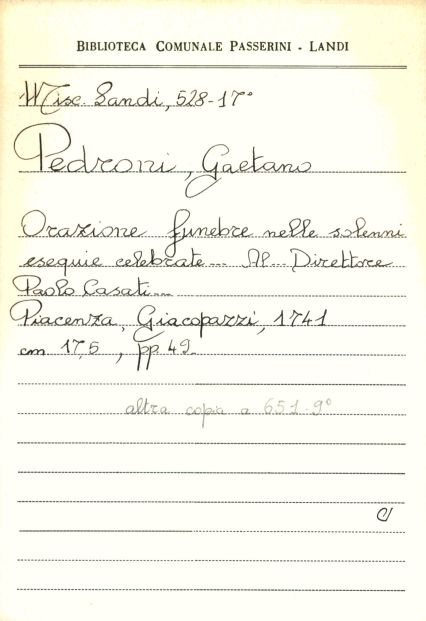 BIBLIOTECA COMUNALE PASSERINI - LANDI
Misc. Landi, 528-17°
Pedroni, Gaetano
Orazione funebre nelle solenni
esequie celebrate... Al... Direttore
Paolo Casati...
Piacenza, Giacopazzi, 1741
cm 17,5, pp. 49.
altra copia a 651-9°